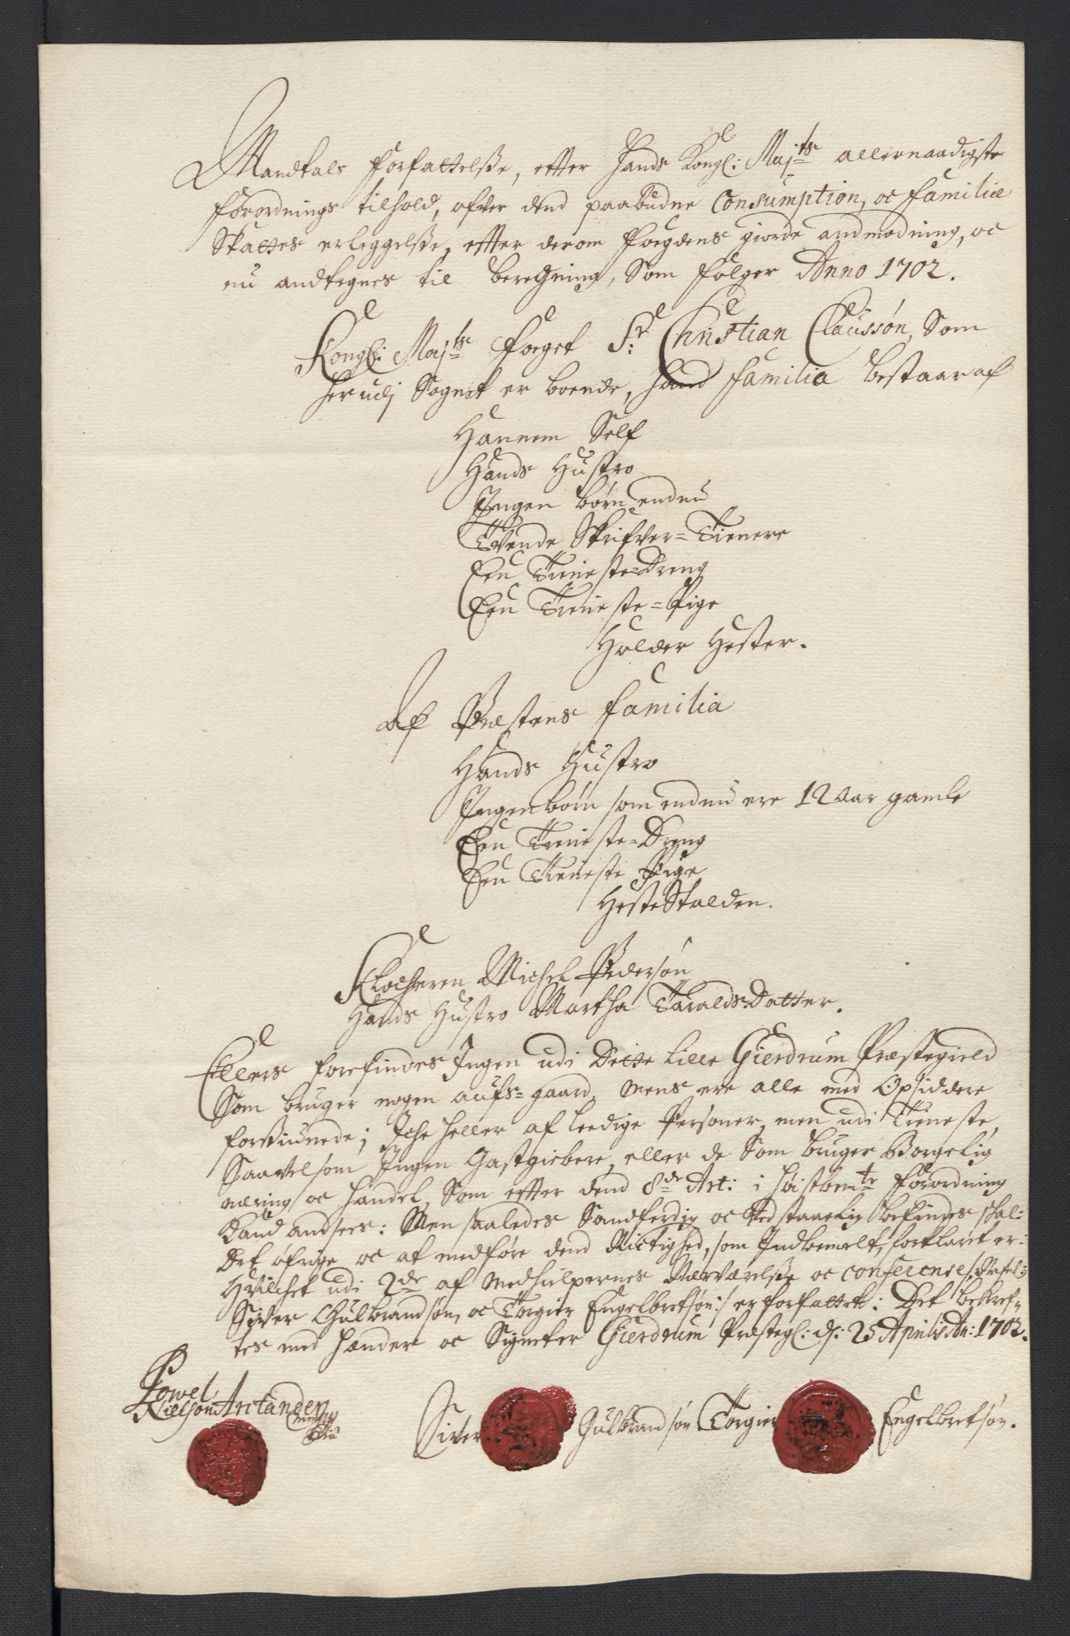 Mandtals Forfattelsse, effter Hands Kongl: Maj:ts allernaadigste
Forordnings tilhold, ofver dend paabudne Consumption, oc Familie
Skattes erleggelsse, effter derom Foegdens giorde andmodning, oc
nu andtegnes til beregning, Som følger Anno 1702.
Kongl: Maj:ts Foeget Sr: Christian Claussøn, Som
her udj Sognet er boende, hand Familia bestaar af
Hannem Self
Hands Hustro
Ingen børn endnu
Tvende Skrifver=Tienere
Een Tieneste=Dreng
Een Tieneste=Pige
Holder Hester.
Af Præstens Familia
Hands Hustro
Ingen børn som endnu ere 12 Aar gamle
Een Tieneste=Dreng
Een Tieneste Pige
Heste Stalden.
Klocheren Michel Pedersøn
Hands Hustro Martha Taralds Datter.
Ellers forefindes Ingen udi Dette Lille Gierdrum Præstegield
Som bruger nogen aufs=gaard, mens ere alle med Opsiddere
forsiunede; Iche heller af leedige Personer, men udi Tieneste,
Saavelsom Ingen Gastgiebere, eller de Som bruger Borgelig
næring oc Handel, Som effter dend 8de Art: i høistbemte Forordning
Kand andsees: Men saaledes Sandferdig oc Ved staaelig befindes skal:
Det øfrige oc at medføre dend Rictighed, som Indbemelt, forklaret er:
Hvilchet udi 2de af Medhielpernes Nærværelsse oc conference /: Nafnl:
Siver Gulbrandsøn, oc Torgier Engelbretsøn :/ er forfattet: Det bekref-
tes med Hænder oc Signeter Gierdrum Præstegl: d: 25 Aprilis An: 1702.
Powel
Nielsøn Arctander
Siver Gulbrandsøn Torgier Engelbretsøn.